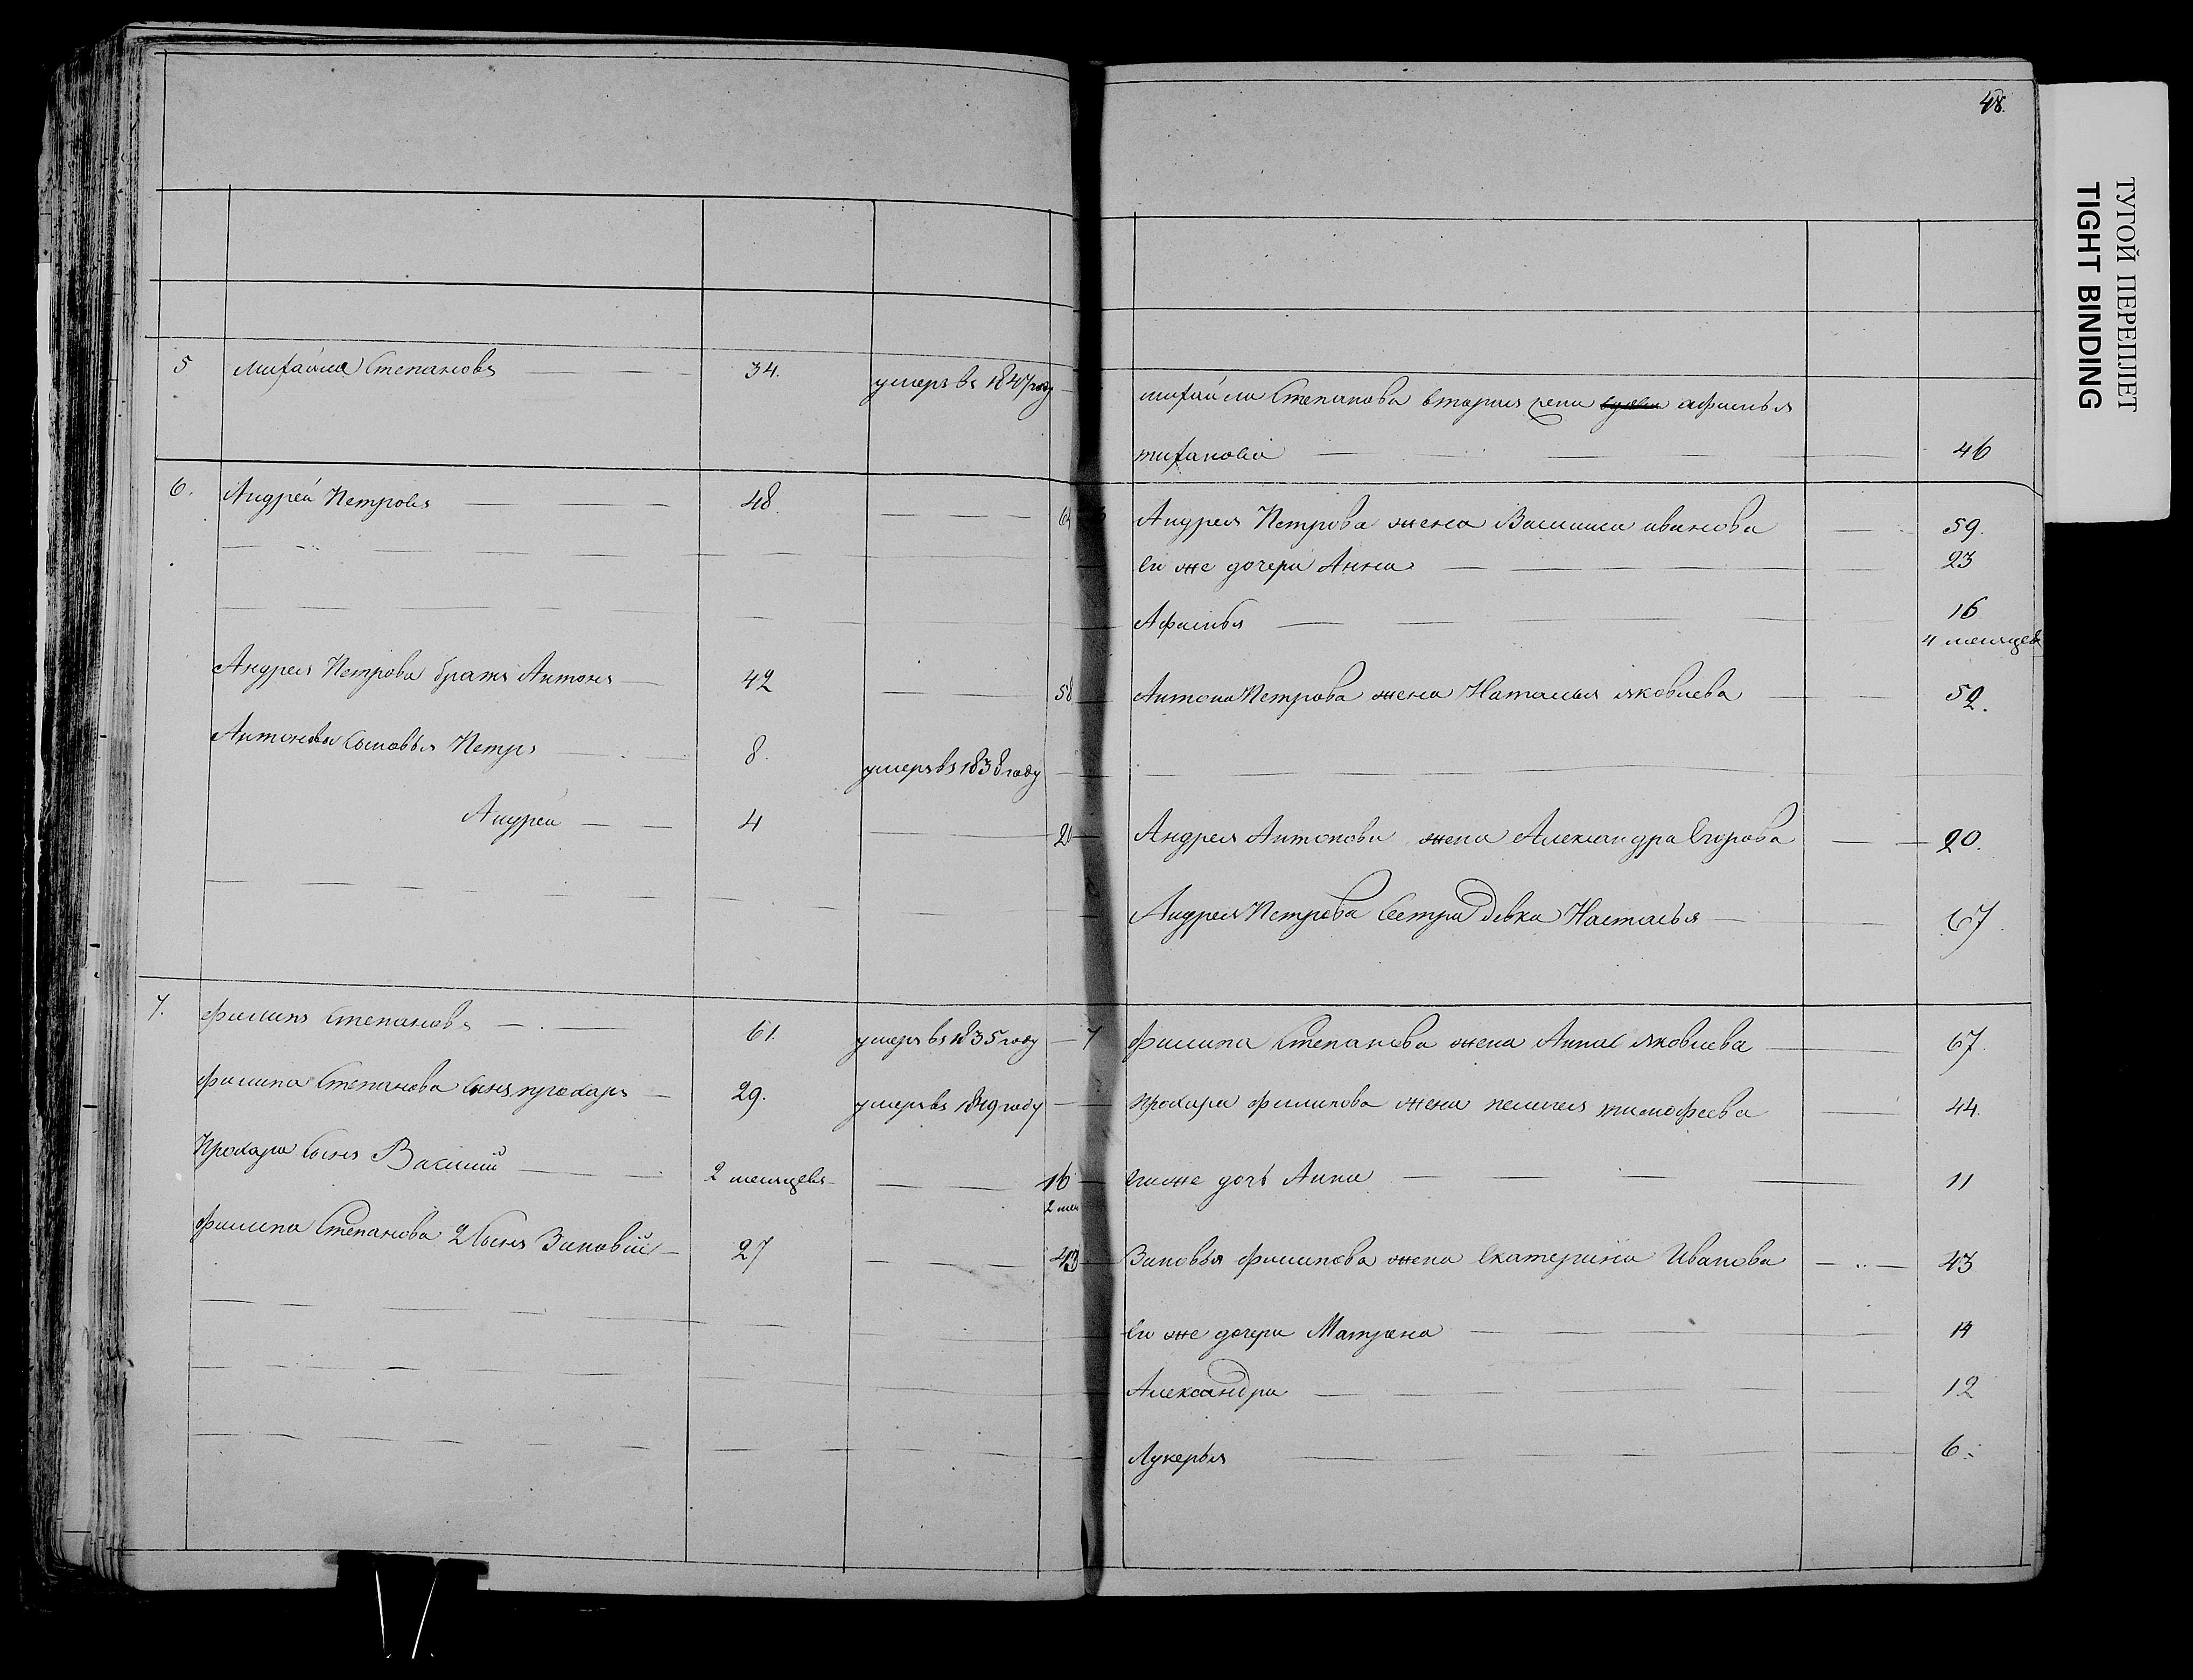 5 михайла Степановъ 34. умеръ въ 1847 году
6. Андрей Петровъ 48. 64
Андрея Петрова братъ Антонъ 42 58
Антоновы Сыновья Петръ 8. умеръ въ 1838 году
Андрей 4 20
7. филипъ Степановъ 61. умеръ въ 1835 году
филипа Степанова Сынъ прохаръ 29. умеръ въ 1849 году
Прохара Сынъ Василий 2 месяцевъ 16
2 мес
филипа Степанова 2 Сынъ Зиновий 27 43
48.
михайла Степанова вторая жена афимья
тиханова 46
Андрея Петрова жена Василиса иванова 59.
Ею же дочери Анна 23
Афимья 16
4 месяцевъ
Антона Петрова жена Наталья яковлева 52.
Андрея Антонова жена Александра Егорова 20.
Андрея Петрова Сестра девка Настасья 67
7 филипа Степанова жена Анна яковлева 67.
прохара филипова жена пелагея тимофеева 44.
Ею же дочь Анна 11
Зиновья филипова жена Екатерина Иванова 43
Ею же дочери Матрена 14
Александра 12
Лукерья 6
ТУГОЙ ПЕРЕПЛЕТ
TIGHT BINDING